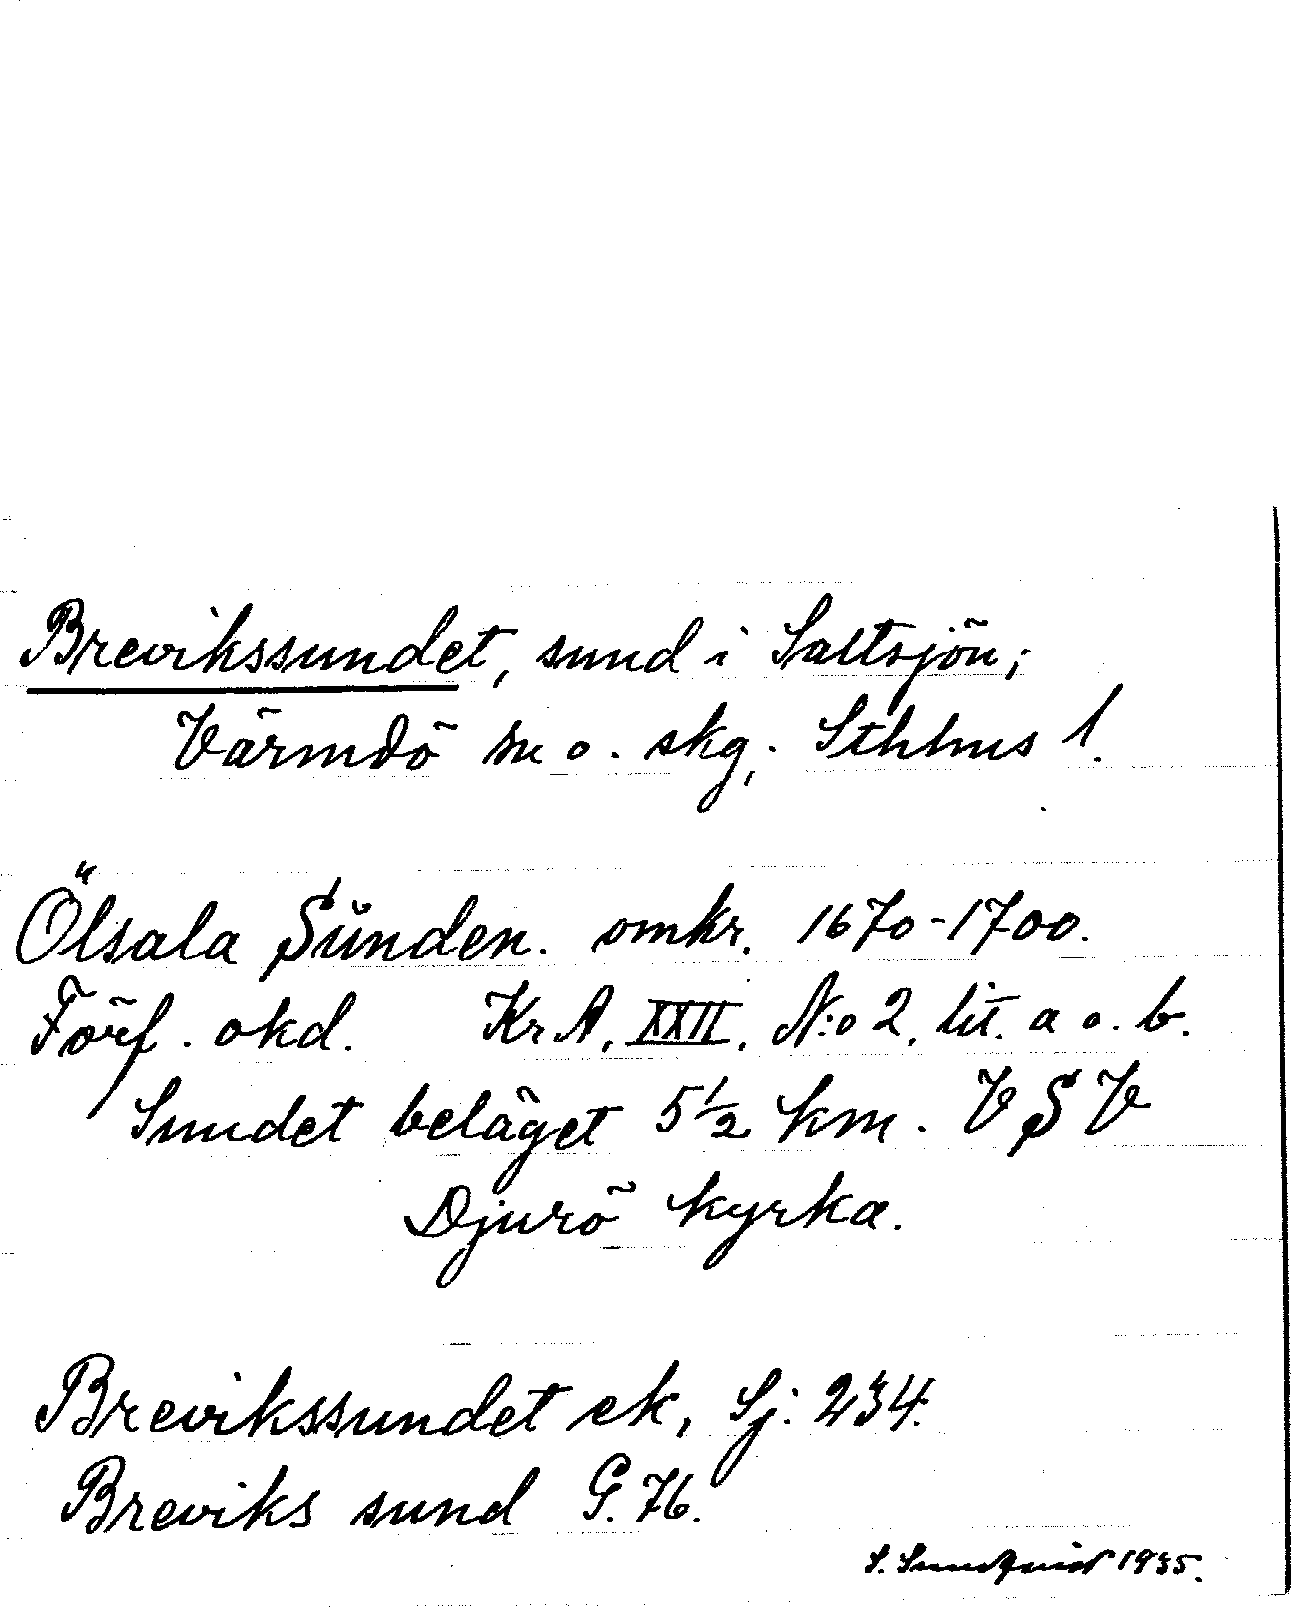 Brevikssundet, sund i Saltsjön;
Värmdö sn o. skg; Sthlms l.
Ölsala Sŭnden. omkr. 1670-1700.
Förf. okd. Kr A. XXII. N:o 2. lit. a o. b.
Sundet beläget 5 1/2 km. VSV
Djurö kyrka.
Brevikssundet ek, Sj: 234.
Breviks sund G. 76.
S. Sundqvist 1935.